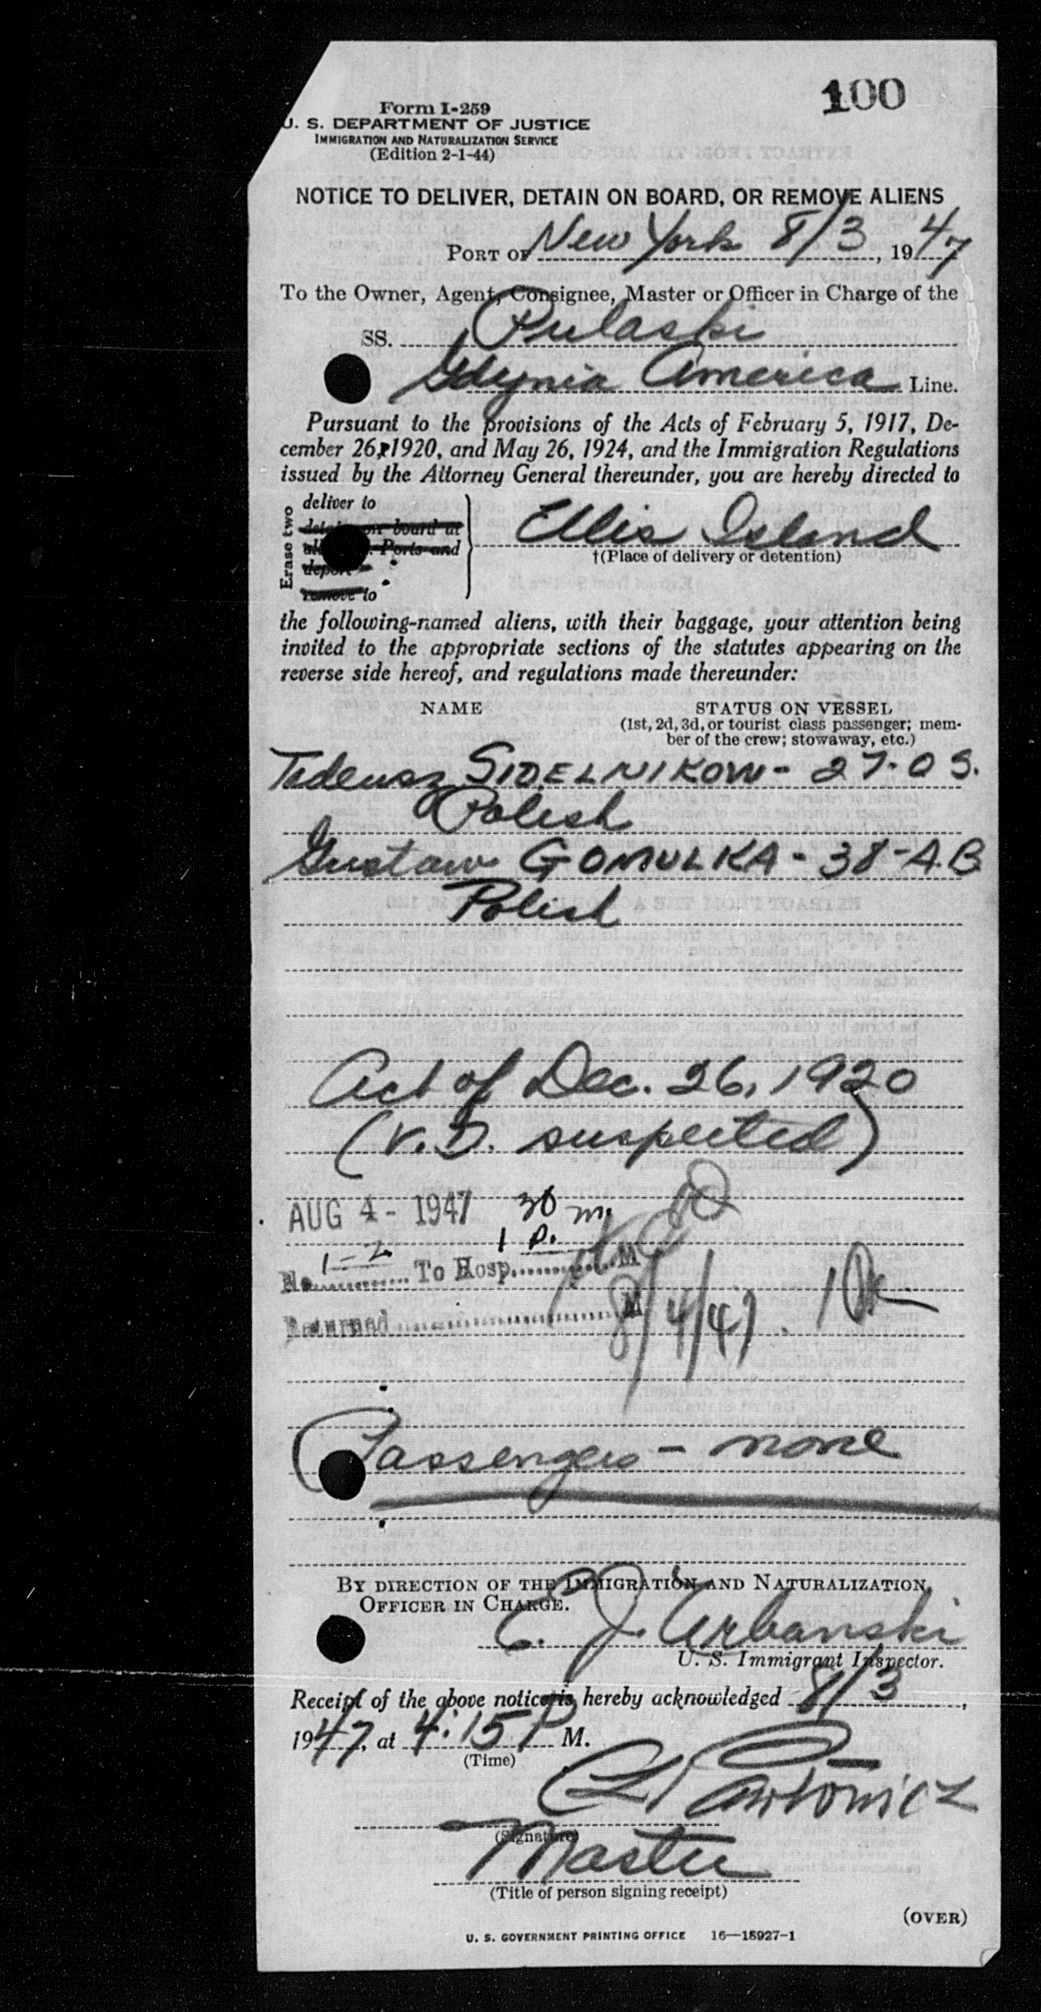 100
Form I-259
U. S. DEPARTMENT OF JUSTICE
IMMIGRATION AND NATURALIZATION SERVICE
(Edition 2-1-44)
NOTICE TO DELIVER, DETAIN ON BOARD, OR REMOVE ALIENS
PORT OF New York 8/3, 1947
To the Owner, Agent, Consignee, Master or Officer in Charge of the
SS. Pulaski
Gdynia America Line.
Pursuant to the provisions of the Acts of February 5, 1917, De-
cember 26, 1920, and May 26, 1924, and the Immigration Regulations
issued by the Attorney General thereunder, you are hereby directed to
Erase two
deliver to
detain on board at
all Ports and
deport
remove to
Ellis Island
†(Place of delivery or detention)
the following-named aliens, with their baggage, your attention being
invited to the appropriate sections of the statutes appearing on the
reverse side hereof, and regulations made thereunder:
NAME STATUS ON VESSEL
(1st, 2d, 3d, or tourist class passenger; mem-
ber of the crew; stowaway, etc.)
Tadeusz SIDELNIKOW - 27 - O S.
Polish
Gustaw GOMULKA - 38 - A.B
Polish
Act of Dec. 26, 1920
(V.D. suspected)
AUG 4 - 1947 30 m.
No. 1-2 To Hosp. 1 P. M
Returned M
8/4/47.
Passengers - none
BY DIRECTION OF THE IMMIGRATION AND NATURALIZATION
OFFICER IN CHARGE.
E. J. Urbanski
U. S. Immigrant Inspector.
Receipt of the above notice is hereby acknowledged 8/3,
1947, at 4:15 P M.
(Time)
(Signature)
Master
(Title of person signing receipt)
(OVER)
U. S. GOVERNMENT PRINTING OFFICE 16—18927-1